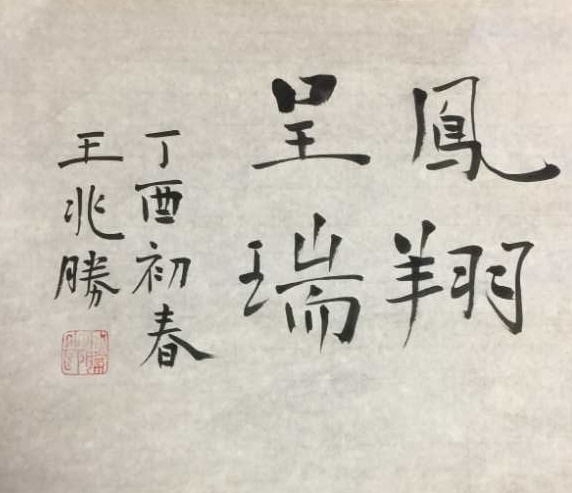 鳳翔
呈瑞
丁酉初春
王兆勝